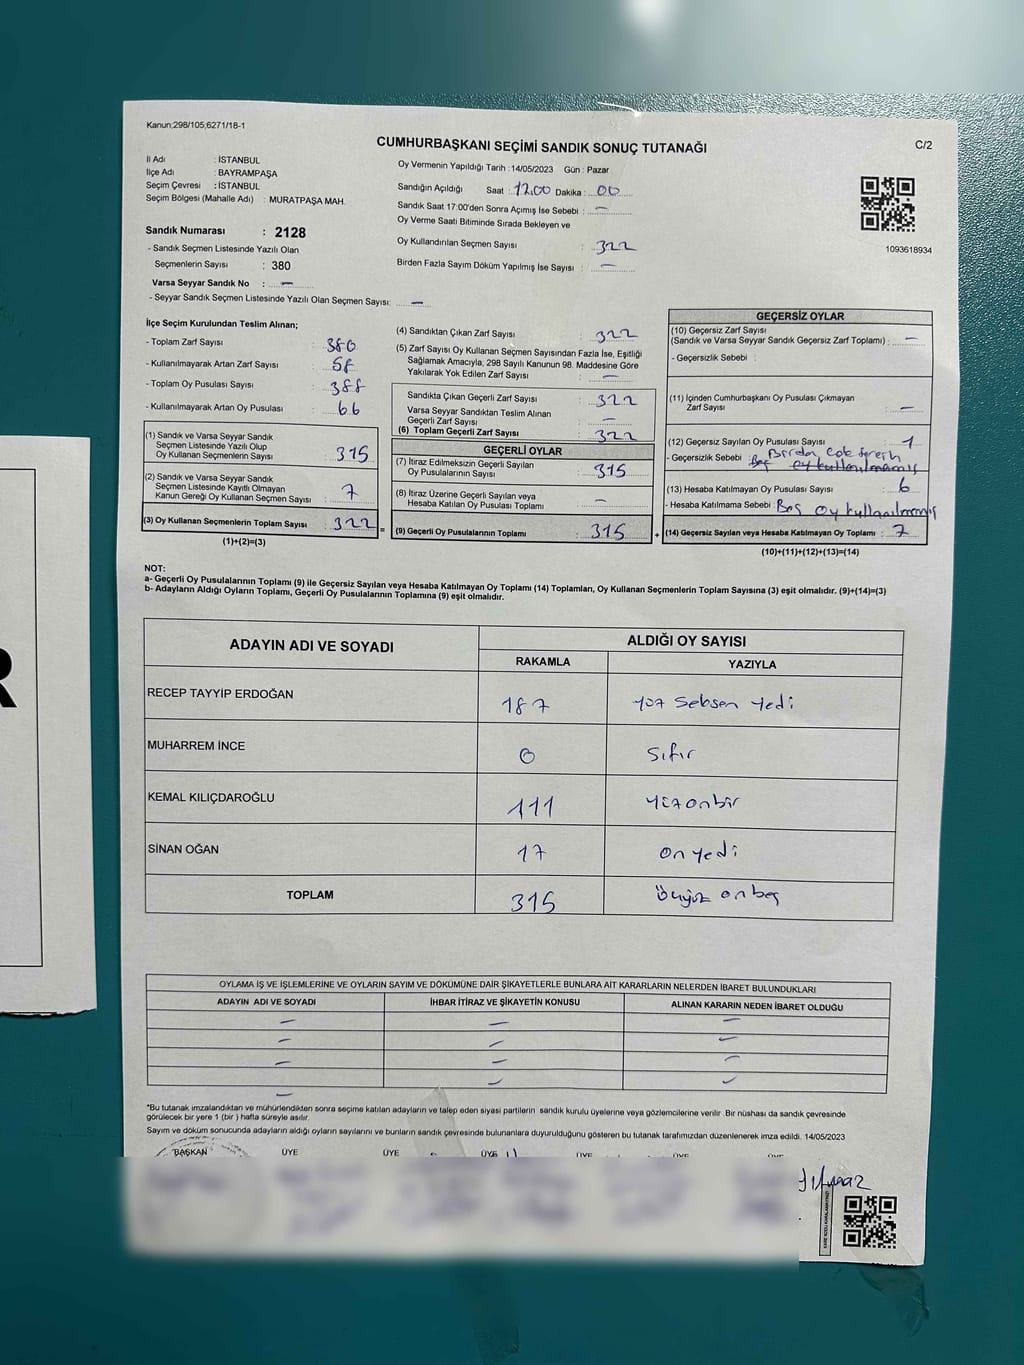 Kanun;298/105;6271/18-1
CUMHURBAŞKANI SEÇİMİ SANDIK SONUÇ TUTANAĞI
C/2
İl Adı : İSTANBUL
İlçe Adı : BAYRAMPAŞA
Seçim Çevresi : İSTANBUL
Seçim Bölgesi (Mahalle Adı) : MURATPAŞA MAH.
Sandık Numarası : 2128
- Sandık Seçmen Listesinde Yazılı Olan
Seçmenlerin Sayısı : 380
Varsa Seyyar Sandık No : —
- Seyyar Sandık Seçmen Listesinde Yazılı Olan Seçmen Sayısı: —
Oy Vermenin Yapıldığı Tarih :14/05/2023 Gün : Pazar
Sandığın Açıldığı Saat : 17.00 Dakika : 00
Sandık Saat 17:00'den Sonra Açımış İse Sebebi : —
Oy Verme Saati Bitiminde Sırada Bekleyen ve
Oy Kullandırılan Seçmen Sayısı : 322
Birden Fazla Sayım Döküm Yapılmış İse Sayısı : —
1093618934
İlçe Seçim Kurulundan Teslim Alınan;
- Toplam Zarf Sayısı : 380
- Kullanılmayarak Artan Zarf Sayısı : 58
- Toplam Oy Pusulası Sayısı : 388
- Kullanılmayarak Artan Oy Pusulası : 66
(1) Sandık ve Varsa Seyyar Sandık
Seçmen Listesinde Yazılı Olup
Oy Kullanan Seçmenlerin Sayısı : 315
(2) Sandık ve Varsa Seyyar Sandık
Seçmen Listesinde Kayıtlı Olmayan
Kanun Gereği Oy Kullanan Seçmen Sayısı : 7
(3) Oy Kullanan Seçmenlerin Toplam Sayısı : 322 =
(1)+(2)=(3)
(4) Sandıktan Çıkan Zarf Sayısı : 322
(5) Zarf Sayısı Oy Kullanan Seçmen Sayısından Fazla İse, Eşitliği
Sağlamak Amacıyla, 298 Sayılı Kanunun 98. Maddesine Göre
Yakılarak Yok Edilen Zarf Sayısı : —
Sandıkta Çıkan Geçerli Zarf Sayısı : 322
Varsa Seyyar Sandıktan Teslim Alınan
Geçerli Zarf Sayısı : —
(6) Toplam Geçerli Zarf Sayısı : 322
GEÇERLİ OYLAR
(7) İtiraz Edilmeksizin Geçerli Sayılan
Oy Pusulalarının Sayısı : 315
(8) İtiraz Üzerine Geçerli Sayılan veya
Hesaba Katılan Oy Pusulası Toplamı : —
(9) Geçerli Oy Pusulalarının Toplamı : 315 +
GEÇERSİZ OYLAR
(10) Geçersiz Zarf Sayısı
(Sandık ve Varsa Seyyar Sandık Geçersiz Zarf Toplamı) : —
- Geçersizlik Sebebi :
(11) İçinden Cumhurbaşkanı Oy Pusulası Çıkmayan
Zarf Sayısı : —
(12) Geçersiz Sayılan Oy Pusulası Sayısı : 1
- Geçersizlik Sebebi : Birden çok tercih
(13) Hesaba Katılmayan Oy Pusulası Sayısı : 6
- Hesaba Katılmama Sebebi : Boş oy kullanılmamış
(14) Geçersiz Sayılan veya Hesaba Katılmayan Oy Toplamı : 7
(10)+(11)+(12)+(13)=(14)
NOT:
a- Geçerli Oy Pusulalarının Toplamı (9) ile Geçersiz Sayılan veya Hesaba Katılmayan Oy Toplamı (14) Toplamları, Oy Kullanan Seçmenlerin Toplam Sayısına (3) eşit olmalıdır. (9)+(14)=(3)
b- Adayların Aldığı Oyların Toplamı, Geçerli Oy Pusulalarının Toplamına (9) eşit olmalıdır.
ADAYIN ADI VE SOYADI ALDIĞI OY SAYISI
RAKAMLA YAZIYLA
RECEP TAYYİP ERDOĞAN 187 yüz seksen yedi
MUHARREM İNCE 0 sıfır
KEMAL KILIÇDAROĞLU 111 yüzonbir
SİNAN OĞAN 17 on yedi
TOPLAM 315 üçyüz onbeş
OYLAMA İŞ VE İŞLEMLERİNE VE OYLARIN SAYIM VE DÖKÜMÜNE DAİR ŞİKAYETLERLE BUNLARA AİT KARARLARIN NELERDEN İBARET BULUNDUKLARI
ADAYIN ADI VE SOYADI İHBAR İTİRAZ VE ŞİKAYETİN KONUSU ALINAN KARARIN NEDEN İBARET OLDUĞU
— — —
— — —
— — —
— — —
*Bu tutanak imzalandıktan ve mühürlendikten sonra seçime katılan adayların ve talep eden siyasi partilerin sandık kurulu üyelerine veya gözlemcilerine verilir. Bir nüshası da sandık çevresinde
görülecek bir yere 1 (bir ) hafta süreyle asılır.
Sayım ve döküm sonucunda adayların aldığı oyların sayılarını ve bunların sandık çevresinde bulunanlara duyurulduğunu gösteren bu tutanak tarafımızdan düzenlenerek imza edildi. 14/05/2023
BAŞKAN ÜYE ÜYE ÜYE ÜYE ÜYE ÜYE
Yılmaz
R